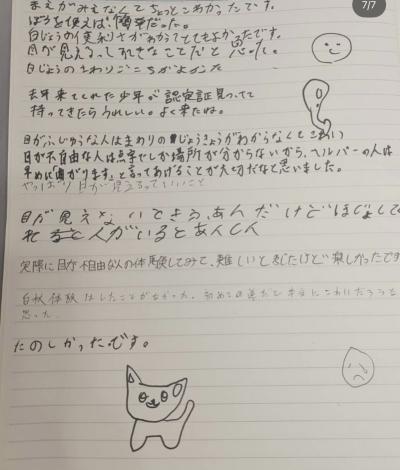 7/7
まえがみえなくてちょっとこわかったです。
ぼうを使えば、簡単だった。
白じょうの便利さがわかってとてもよかったです。
目が見えるってすてきなことだと思った。
白じょうのさわりごこちがよかった
去年来てくれた少年が認定証見つけて
持ってきたらうれしい。よく来たね。
目がふじゆうな人はまわりのじょうきょうがわからなくてこわい
目が不自由な人は点字でしか場所が分からないから、ヘルパーの人は
早めに曲がります。と言ってあげることが大切だなと思いました。
やっぱり目が見えるっていいこと
目が見えないときふあんだけどほじょして
れる人がいるとあんしん
実際に目が不自由な人の体験してみて、難しいと感じたけど楽しかったです
白杖体験はしたことがなかった。初めての道だと本当にこわいだろうな
思った。
たのしかったです。